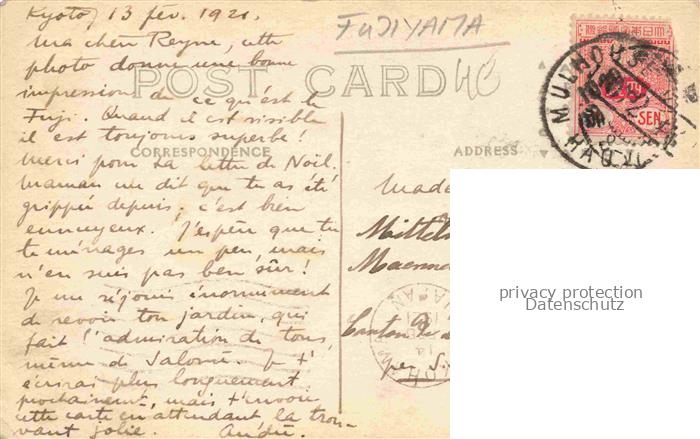 Kyoto, 13 fév. 1921.
FUJIYAMA
Ma chère Reyne, cette
photo donne une bonne
POST CARD
40
impression de ce qu'est le
Fuji. Quand il est visible
il est toujours superbe!
Merci pour la lettre de Noël.
CORRESPONDENCE
ADDRESS
Maman me dit que tu as été
grippée depuis; c'est bien
ennuyeux. J'espère que tu
te ménages un peu, mais
n'en suis pas bien sûr!
Je me réjouis énormément
de revoir ton jardin, qui
fait l'admiration de tous,
même de Salomé. Je t'
écrirai plus longuement
prochainemt, mais t'envoie
cette carte en attendant la trou-
vant jolie. André.
Made
Mittel
Canton de
per S
大日本帝國郵便
SEN
JAPAN
privacy protection
Datenschutz